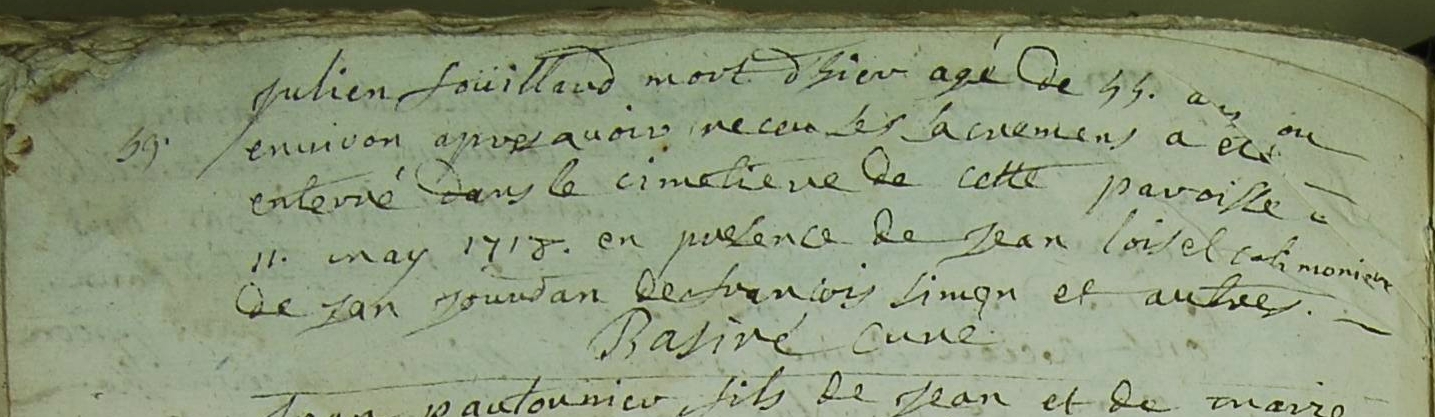 julien souillard mort d'hier agé de 55. ans ou
59. environ apres avoir receu les sacremens a eté
enterré dans le cimetiere de cette paroisse
11. may 1718. en presence de jean loisel
de jan jourdan de francois simon et autres.
Basiré curé
jean pautonnier fils de jean et de marie